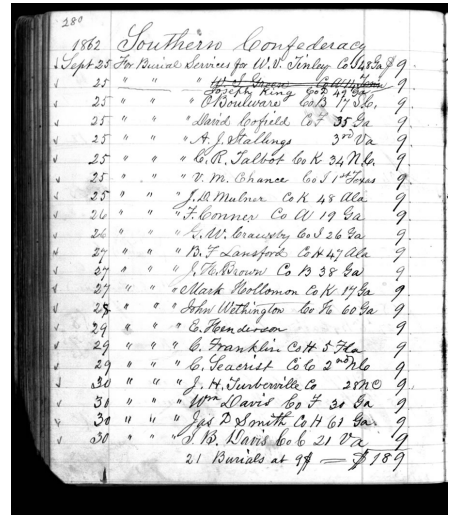 280
1862 Southern Confederacy
Sept 25 For Burial Services for W. V. Tinley Co I 48 Ga $ 9
" " " W S Green Co A 14 Tenn
25 Joseph King Co B 49 Ga 9
25 " " " C Bouleware Co B 17 S.C. 9
25 " " " David Cofield Co F 35 Ga 9
25 " " " A. J. Stallings 3rd Va 9
25 " " " C. R. Talbot Co K 34 N.C. 9
25 " " " V. M. Chance Co I 1st Texas 9
25 " " " J. D. Mulner Co K 48 Ala 9
26 " " " F. Conner Co A 19 Ga 9
26 " " " G. W. Co I 26 Ga 9
27 " " " B. F Lansford Co H 47 Ala 9
27 " " " J. H. Brown Co B 38 Ga 9
27 " " " Mark Hollomon Co K 17 Ga 9
28 " " " John Wethington Co H 60 Ga 9
29 " " " E. Henderson 9
29 " " " C. Franklin Co H 5 Fla 9
29 " " " C. Seacrist Co C 2nd N.C 9
30 " " " J. H. Turberville Co 28 N C 9
30 " " " Wm Davis Co F 31 Ga 9
30 " " " Jas D Smith Co H 61 Ga 9
30 " " " J. B. Davis Co C 21 Va 9
21 Burials at 9$ — $189